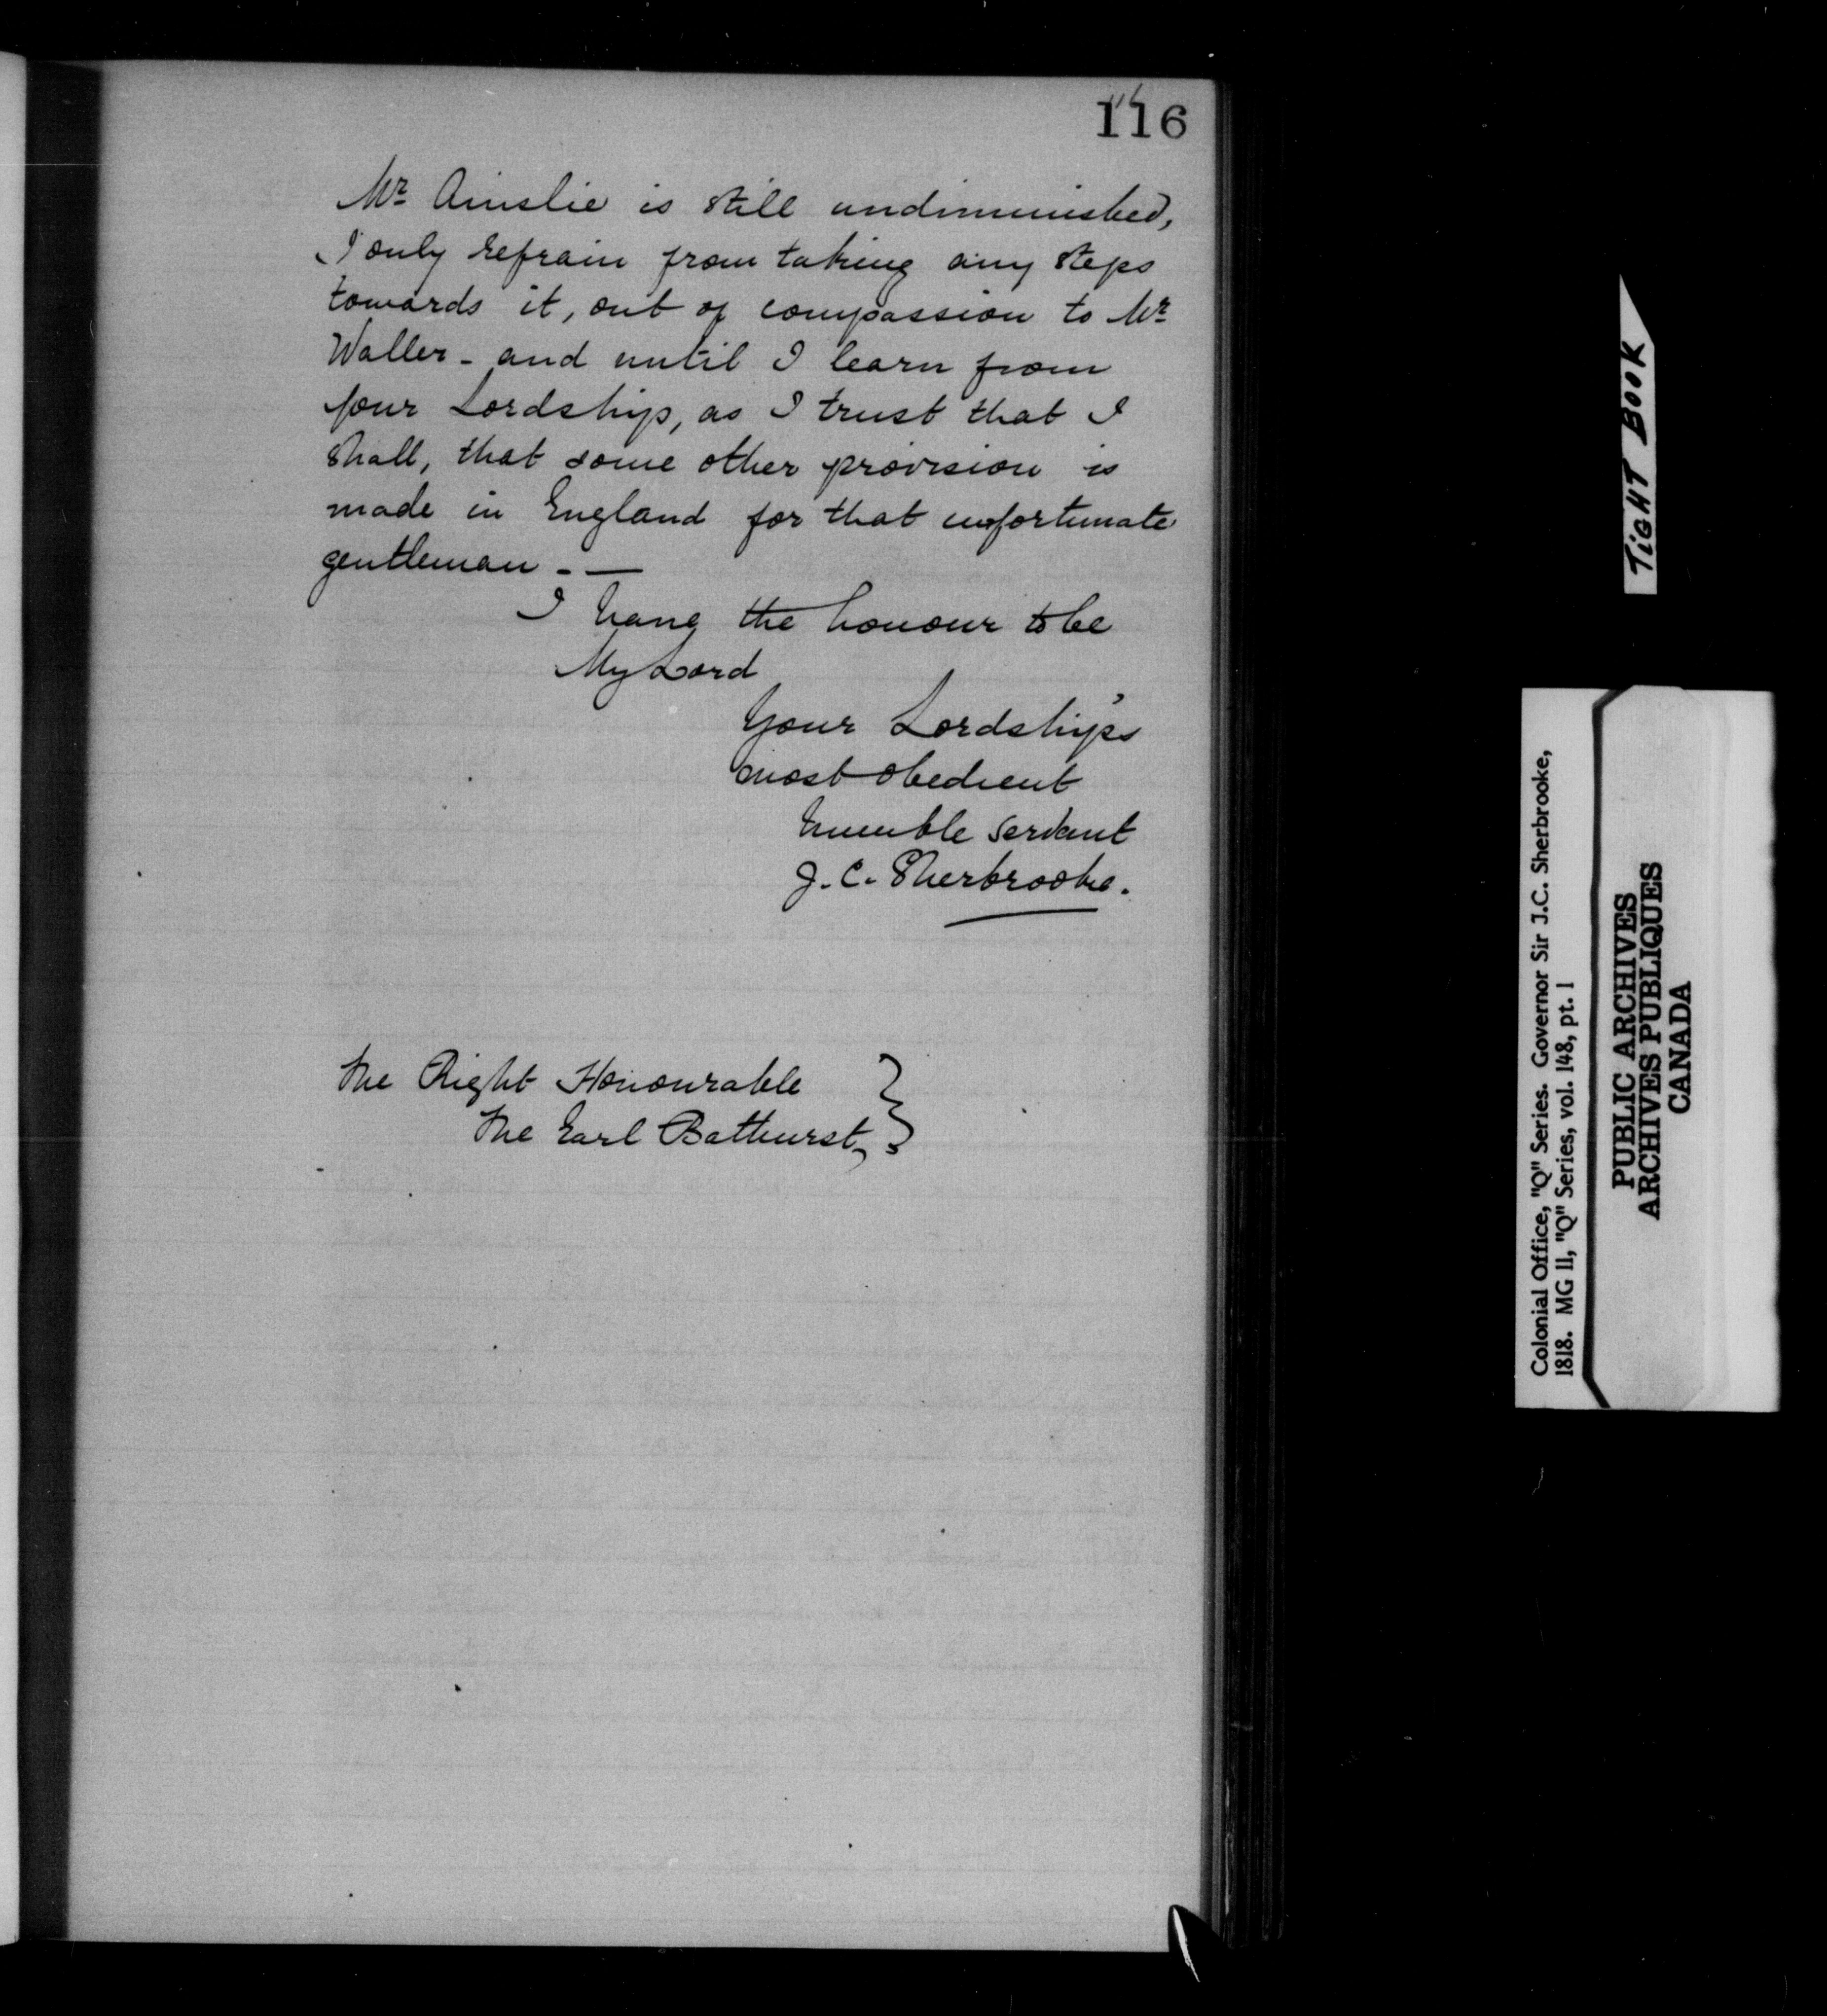 116
Mr Ainslie is still undiminished,
I only refrain from taking any steps
towards it, out of compassion to Mr
Waller - and until I learn from
your Lordship, as I trust that I
shall, that some other provision is
made in England for that unfortunate
gentleman - —
I have the honour to be
My Lord
Your Lordship's
most obedient
humble servant
J. C. Sherbrooke.
The Right Honourable
The Earl Bathurst,
TIGHT BOOK
Colonial Office, "Q" Series. Governor Sir J.C. Sherbrooke,
1818. MG 11, "Q" Series, vol. 148, pt. 1
PUBLIC ARCHIVES
ARCHIVES PUBLIQUES
CANADA